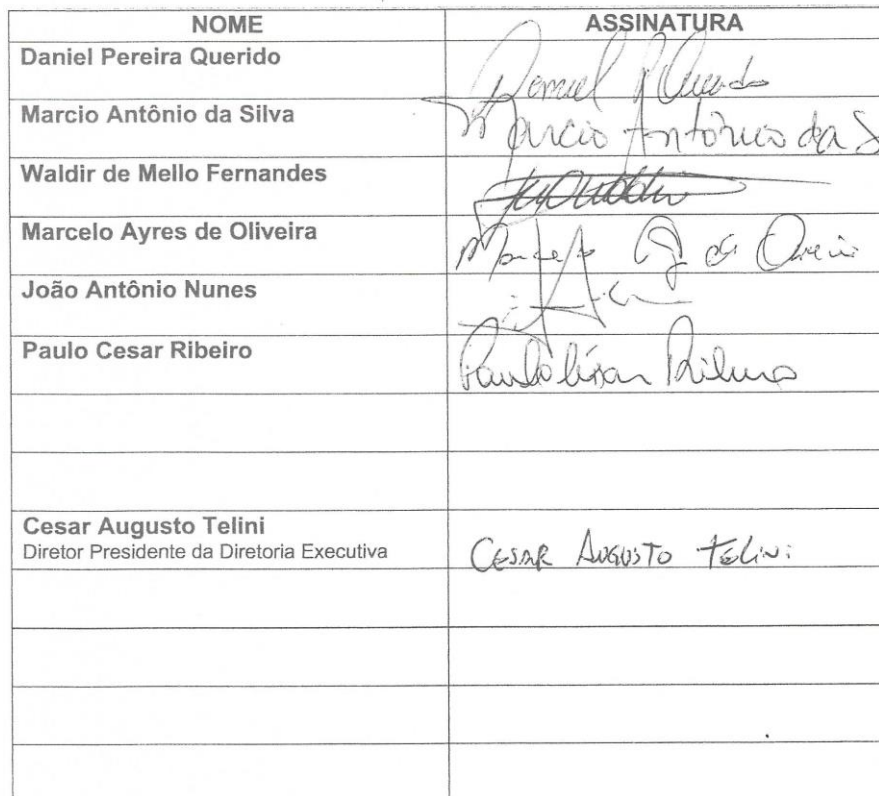 NOME ASSINATURA
Daniel Pereira Querido Daniel P Querido
Marcio Antônio da Silva Marcio Antônio da S
Waldir de Mello Fernandes
Marcelo Ayres de Oliveira
João Antônio Nunes
Paulo Cesar Ribeiro Paulo César Ribeiro
Cesar Augusto Telini
Diretor Presidente da Diretoria Executiva CESAR AUGUSTO TELINI